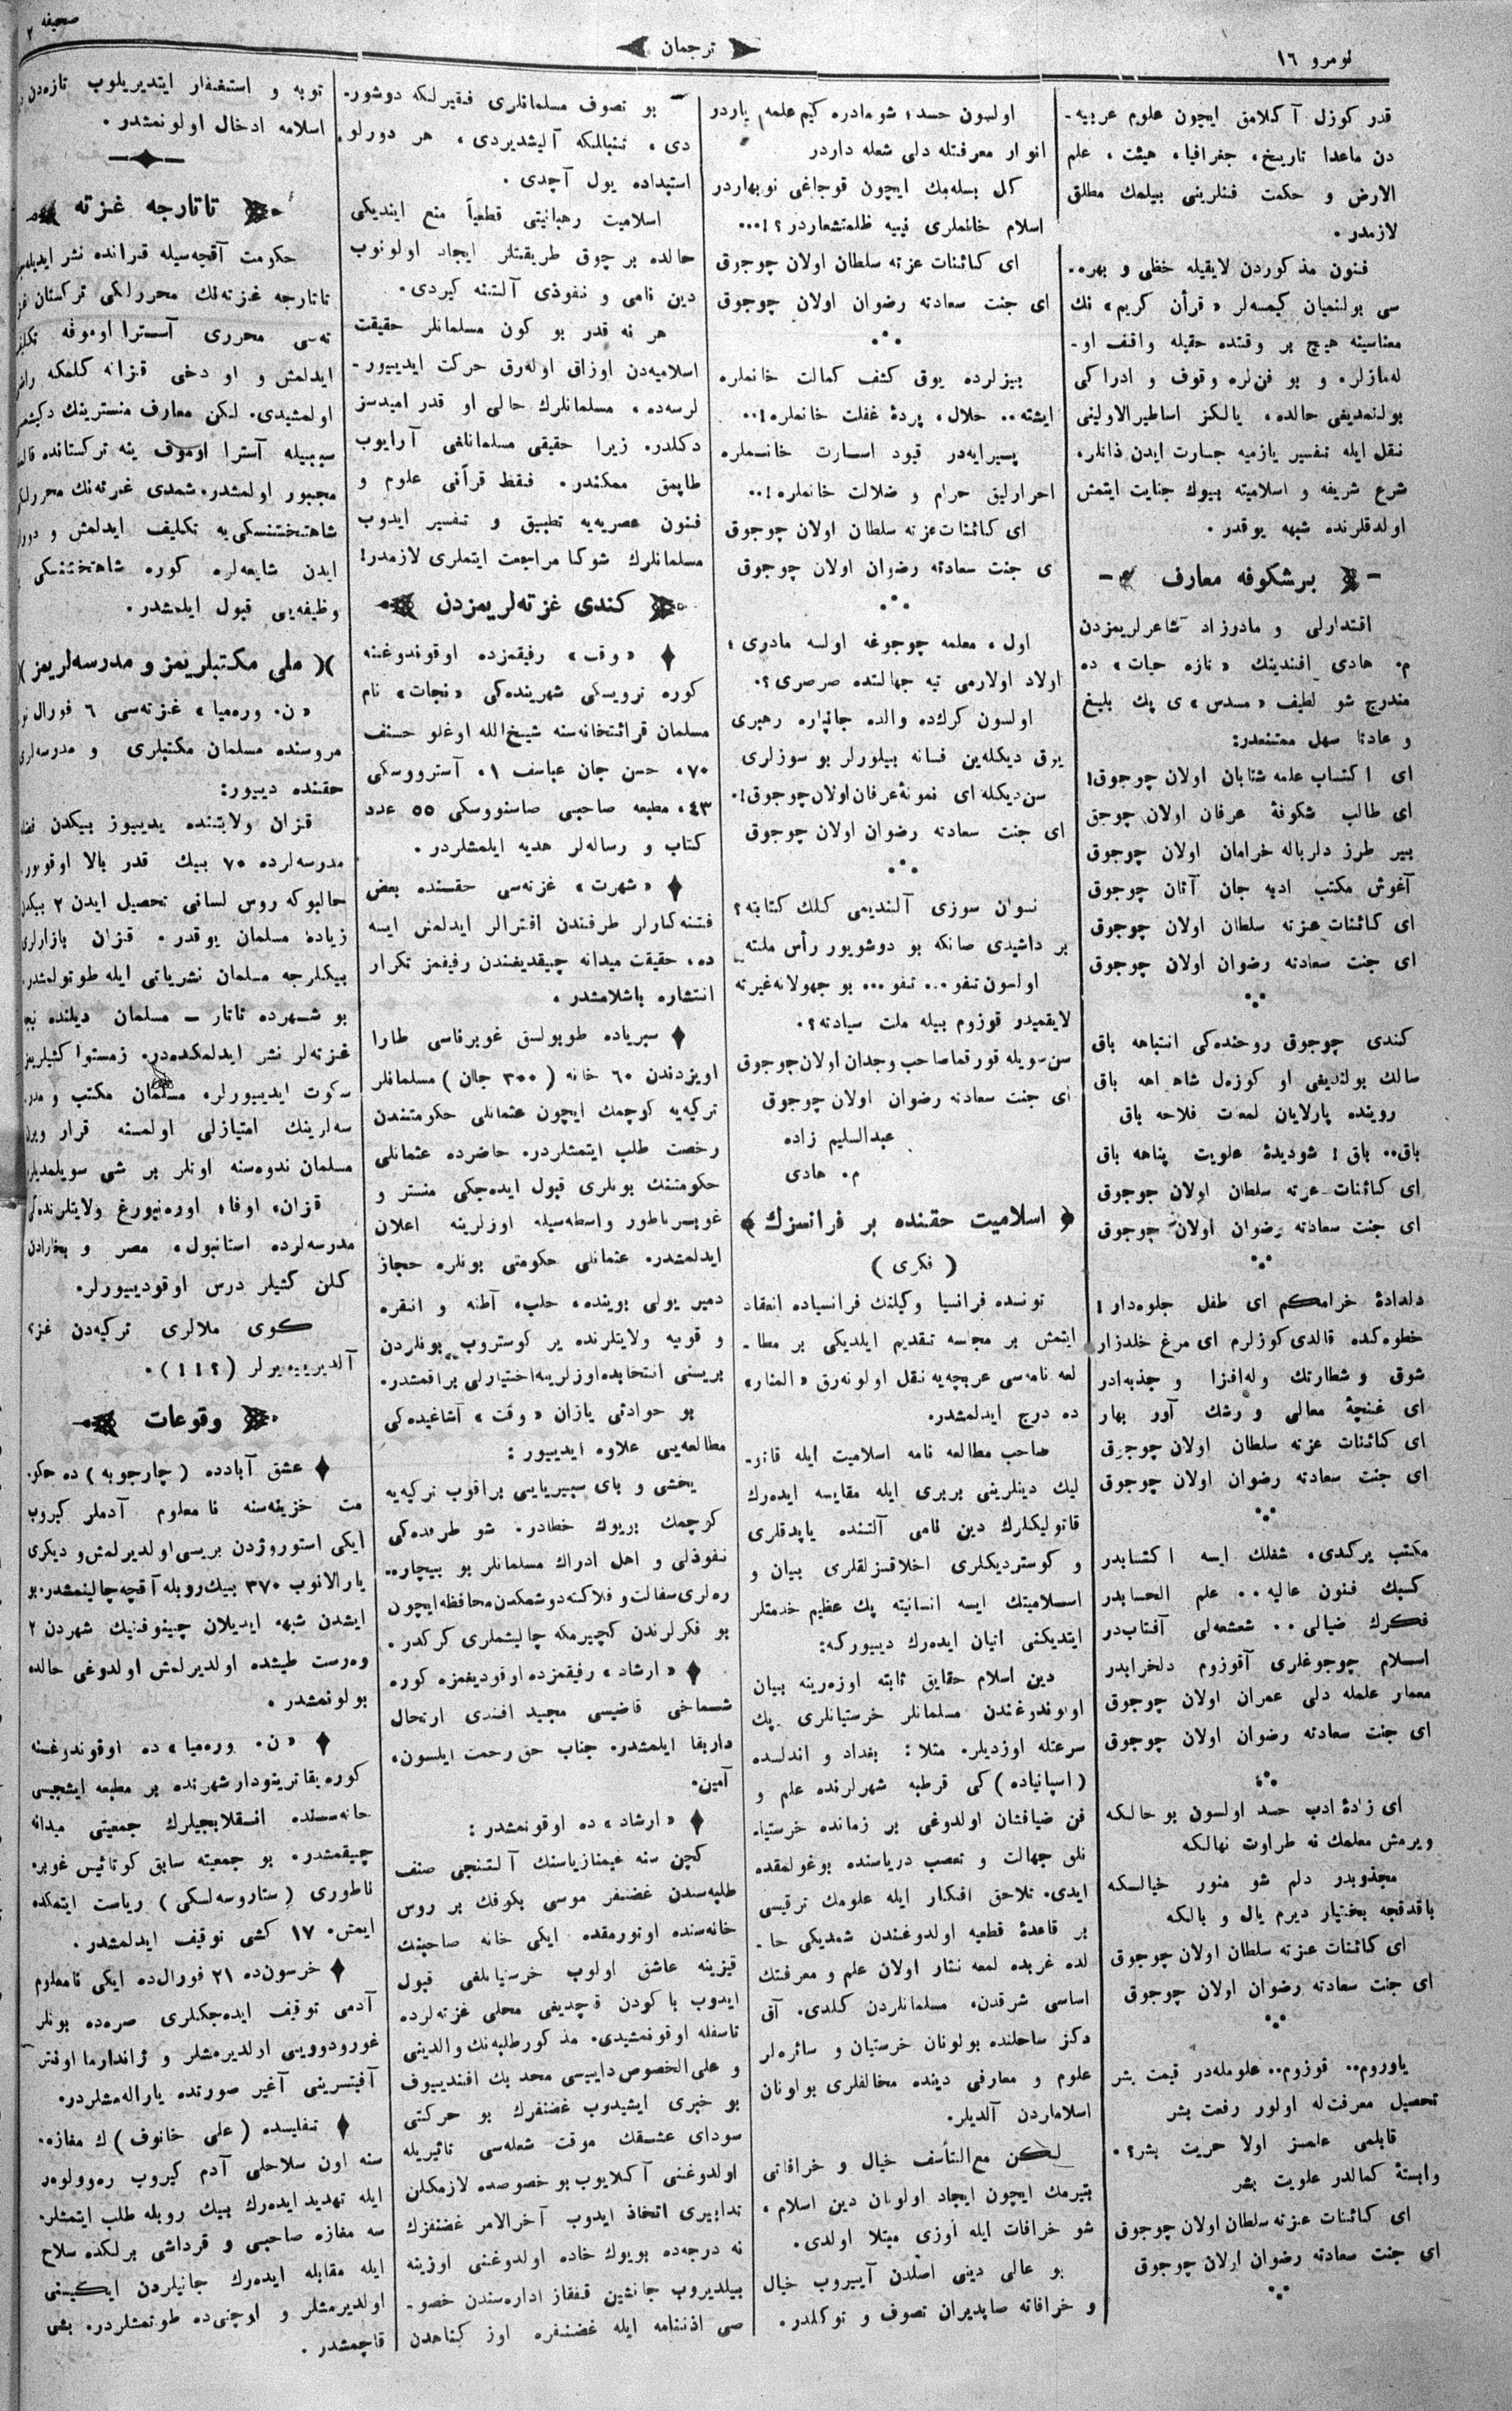 نومرو ١٦
ترجمان
صحیفه ٢
قدر كوزل آكلامق ایچون علوم عربیه-
دن ماعدا تاریخ، جغرافیا، هیئت، علم
الارض و حكمت فنلرینی بیلمك مطلق
لازمدر.
فنون مذكوردن لایقیله حظی و بهره-
سی بولنمیان كیمسه‌لر «قرأن كریم» نك
معناسینه هیچ بر وقتده حقیله واقف او-
له‌مازلر. و بو فن‌لره وقوف و ادراكی
بولنمدیغی حالده، یالكز اساطیرالاولینی
نقل ایله تفسیر یازمیه جسارت ایدن ذاتلر،
شرع شریفه و اسلامیته بیوك جنایت ایتمش
اولدقلرنده شبهه یوقدر.
برشكوفه معارف
اقتدارلی و مادرزاد شاعرلریمزدن
م. هادی افندینك «تازه حیات» ده
مندرج شو لطیف «مسدس» ی پك بلیغ
و عادتا سهل ممتنعدر:
ای اكتساب علمه شتابان اولان چوجوق!
ای طالب شكوفهٔ عرفان اولان چوجق
بیر طرز دلرباله خرامان اولان چوجوق
آغوش مكتب ادبه جان آتان چوجوق
ای كائنات عزته سلطان اولان چوجوق
ای جنت سعادته رضوان اولان چوجوق
كندی چوجوق روحنده‌كی انتباهه باق
سالك بولندیغی او كوزل شاهراهه باق
روینده پارلایان لمعات فلاحه باق
باق.. باق! شودیدهٔ علویت پناهه باق
ای كائنات عزته سلطان اولان چوجوق
ای جنت سعادته رضوان اولان چوجوق
دلدادهٔ خرامكم ای طفل جلوه‌دار!
خطوه‌كده قالدی كوزلرم ای مرغ خلدزار
شوق و شطارتك وله‌افزا و جذبه‌دار
ای غنچهٔ معالی و رشك آور بهار
ای كائنات عزته سلطان اولان چوجوق
ای جنت سعادته رضوان اولان چوجوق
مكتب یركدی، شغلك ایسه اكتسابدر
كسبك فنون عالیه.. علم الحسابدر
فكرك ضیالی.. شعشعه‌لی آفتاب‌در
اسلام چوجوغلری آقوزوم دلخرابدر
معمار علمله دلی عمران اولان چوجوق
ای جنت سعادته رضوان اولان چوجوق
ای زادهٔ ادب حسد اولسون بو حالكه
ویرمش معلمك نه طراوت نهالكه
مجذوبدر دلم شو منور خیالكه
باقدقجه بختیار دیرم یال و بالكه
ای كائنات عزته سلطان اولان چوجوق
ای جنت سعادته رضوان اولان چوجوق
یاوروم.. قوزوم.. علومله‌در قیمت بشر
تحصیل معرفت‌له اولور رفعت بشر
قابلمی علمسز اولا حریت بشر؟.
وابستهٔ كمالدر علویت بشر
ای كائنات عزته سلطان اولان چوجوق
ای جنت سعادته رضوان اولان چوجوق
اولسون حسد، شو مادره كیم علمه یاردر
انوار معرفتله دلی شعله داردر
كل بسله‌مك ایچون قوجاغی نوبهاردر
اسلام خانملری نییه ظلمتشعاردر؟!...
ای كائنات عزته سلطان اولان چوجوق
ای جنت سعادته رضوان اولان چوجوق
بیزلرده یوق كشف كمالت خانملره
ایشته.. حلال، پردهٔ غفلت خانملره!..
پیرایه‌در قیود اسارت خانملره
احرارلیق حرام و ضلالت خانملره!..
ای كائنات عزته سلطان اولان چوجوق
ی جنت سعادته رضوان اولان چوجوق
اول، معلمه چوجوغه اولسه مادری،
اولاد اولارمی تیه جهالتده صرصری؟.
اولسون كرك‌ده والده جانپاره رهبری
یوق دیكله‌ین فسانه بیلورلر بو سوزلری
سن‌دیكله ای نمونهٔ عرفان اولان چوجوق!.
ای جنت سعادته رضوان اولان چوجوق
نسوان سوزی آلندیمی كلك كتابته؟
بر داشیدی صانكه بو دوشویور رأس ملته
اولسون تفو... تفو... بو جهولانه غیرته
لایقمیدو قوزوم بیله ملت سیادته؟.
سن سویله قورقما صاحب وجدان اولان چوجوق
ای جنت سعادته رضوان اولان چوجوق
عبدالسلیم زاده
م. هادی
اسلامیت حقنده بر فرانسزك
(فكری)
تونسده فرانسیا وكیلنك فرانسیاده انعقاد
ایتمش بر مجلسه تقدیم ایلدیكی بر مطا-
لعه نامه‌سی عربچه‌یه نقل اولونه‌رق «المنار»
ده درج ایدلمشدر.
صاحب مطالعه نامه اسلامیت ایله قاتو-
لیك دینلرینی بربری ایله مقایسه ایده‌رك
قاتولیكلرك دین نامی آلتنده یاپدقلری
و كوستردیكلری اخلاقسزلقلری بیان و
اسلامیتك ایسه انسانیته پك عظیم خدمتلر
ایتدیكنی اتیان ایده‌رك دییوركه:
دین اسلام حقایق ثابته اوزه‌رینه بیان
اولوندوغندن مسلمانلر خرستیانلری پك
سرعتله اوزدیلر. مثلا: بغداد و اندلسده
(اسپانیاده) كی قرطبه شهرلرنده علم و
فن ضیافشان اولدوغی بر زمانده خرستیا-
نلق جهالت و تعصب دریاسنده بوغولمقده
ایدی. تلاحق افكار ایله علومك ترقیسی
بر قاعدهٔ قطعیه اولدوغندن شمدیكی حا-
لده غربده لمعه نثار اولان علم و معرفتك
اساسی شرقدن، مسلمانلردن كلدی. آق
دكز ساحلنده بولونان خرستیان و سائره‌لر
علوم و معارفی دینده مخالفلری بولونان
اسلاماردن آلدیلر.
لكن مع‌التأسف خیال و خرافاتی
بتیرمك ایچون ایجاد اولونان دین اسلام،
شو خرافات ایله اوزی مبتلا اولدی.
بو عالی دینی اصلدن آییروب خیال
و خرافاته صاپدیران تصوف و توكلدر.
بو تصوف مسلمانلری فقیرلكه دوشور-
دی، تنبللكه آلیشدیردی، هر دورلو
استبداده یول آچدی.
اسلامیت رهبانیتی قطعیاً منع ایتدیكی
حالده بر چوق طریقتلر ایجاد اولونوب
دین نامی و نفوذی آلتنه كیردی.
هر نه قدر بو كون مسلمانلر حقیقت
اسلامیه‌دن اوزاق اوله‌رق حركت ایدییور-
لرسه‌ده، مسلمانلرك حالی او قدر امیدسز
دكلدر. زیرا حقیقی مسلمانلغی آرایوب
طاپمق ممكندر. فقط قرآنی علوم و
فنون عصریه‌یه تطبیق و تفسیر ایدوب
مسلمانلرك شوكا مراجعت ایتملری لازمدر!
كندی غزته‌لریمزدن
«وقت» رفیقمزده اوقوندوغنه
كوره ترویسكی شهرینده‌كی «نجات» نام
مسلمان قرائتخانه‌سنه شیخ‌الله اوغلو حسنف
٧٠، حسن جان عباسف ١، آسترووسكی
٤٣، مطبعه صاحبی صاسنووسكی ٥٥ عدد
كتاب و رساله‌لر هدیه ایلمشلردر.
«شهرت» غزته‌سی حقنده بعض
فتنه‌كارلر طرفندن افترالر ایدلمش ایسه
ده، حقیقت میدانه چیقدیغندن رفیقمز تكرار
انتشاره باشلامشدر.
سبریاده طوبولسق غوبرناسی طارا
اویزدندن ٦٠ خانه (٣٠٠ جان) مسلمانلر
تركیه‌یه كوچمك ایچون عثمانلی حكومتندن
رخصت طلب ایتمشلردر. حاضرده عثمانلی
حكومتنك بونلری قبول ایده‌جكی منستر و
غوبرناطور واسطه‌سیله اوزلرینه اعلان
ایدلمشدر. عثمانلی حكومتی بونلره حجاز
دمیر یولی بوینده، حلب، آطنه و انقره
و قونیه ولایتلرنده یر كوستروب بونلردن
بریسنی انتخابده اوزلرینه اختیارلی براقمشدر.
بو حوادثی یازان «وقت» آشاغیده‌كی
مطالعه‌یی علاوه ایدییور:
یخشی و بای سیبیریایی براقوب تركیه‌یه
كوچمك بریوك خطادر. شو طرفده‌كی
نفوذلی و اهل ادراك مسلمانلر بو بیچاره-
ره‌لری سفالت و فلاكته دوشمكدن محافظه ایچون
بو فكرلرندن كچیرمكه چالیشملری كركدر.
«ارشاد» رفیقمزده اوقودیغمزه كوره
شماخی قاضیسی مجید افندی ارتحال
داربقا ایلمشدر. جناب حق رحمت ایلسون،
آمین.
«ارشاد» ده اوقونمشدر:
كچن سنه غیمنازیاسنك آلتنجی صنف
طلبه‌سندن غضنفر موسی بكوفك بر روس
خانه‌سنده اوتورمقده ایكی خانه صاحبنك
قیزینه عاشق اولوب خرستیانلغی قبول
ایدوب باكودن قچدیغی محلی غزته‌لرده
تاسفله اوقونمشیدی. مذكور طلبه‌نك والدینی
و علی‌الخصوص داییسی محمد بك افندییوف
بو خبری ایشیدوب غضنفرك بو حركتی
سودای عشقك موقت شعله‌سی تاثیریله
اولدوغنی آكلایوب بو خصوصده لازمكلن
تدابیری اتخاذ ایدوب آخرالامر غضنفرك
نه درجه‌ده بویوك خاده اولدوغنی اوزینه
بیلدیروب جانشین قفقاز اداره‌سندن خصو-
صی اذننامه ایله غضنفره اوز كناهدن
توبه و استغفار ایتدیریلوب تازه‌دن
اسلامه ادخال اولونمشدر.
تاتارجه غزته
حكومت آقچه‌سیله قزانده نشر ایدیله‌
تاتارجه غزته‌نك محررلكی تركستان
ته‌سی محرری آسترا اوموفه تكلیف
ایدلمش و او دخی قزانه كلمكه راض
اولمشیدی. لكن معارف منسترینك دكیشم
سببیله آسترا اوموف ینه تركستانده قالم
مجبور اولمشدر. شمدی غزته‌نك محررلك
شاهتختنسكی‌یه تكلیف ایدلمش و دور
ایدن شایعه‌لره كوره شاهتختنسكی
وظیفه‌یی قبول ایلمشدر.
ملی مكتبلریمز و مدرسه‌لریمز
«ن. وره‌میا» غزته‌سی ٦ فورال
مروسنده مسلمان مكتبلری و مدرسه‌لری
حقنده دییور:
قزان ولایتنده یدییوز بیكدن
مدرسه‌لرده ٧٠ بیك قدر بالا اوقویور
حالبوكه روس لسانی تحصیل ایدن ٢ بیكدن
زیاده مسلمان یوقدر. قزان بازارلری
بیكلرجه مسلمان نشریاتی ایله طوتولمشدر.
بو شهرده تاتار – مسلمان دیلنده
غزته‌لر نشر ایدلمكده‌در. زمستوا كشیلریز
سكوت ایدییورلر، مسلمان مكتب و مدر
سه‌لرینك امتیازلی اولمسنه قرار ویرن
مسلمان ندوه‌سنه اونلر بر شی سویلمدیلر
قزان، اوفا، اورنبورغ ولایتلرنده‌كی
مدرسه‌لرده استانبول، مصر و بخارادن
كلن كشیلر درس اوقودییورلر.
كوی ملالری تركیه‌دن غز؟
آلدیرییورلر (!!؟).
وقوعات
عشق آبادده (چارجویه) ده حكو-
مت خزینه‌سنه نامعلوم آدملر كیروب
ایكی استوروژدن بریسی اولدیرلمش و دیكری
یارالانوب ٣٧٠ بیك روبله آقچه چالینمشدر. بو
ایشدن شبهه ایدیلان چینوفنیك شهردن ٢
وه‌رست طیشده اولدیرلمش اولدوغی حالده
بولونمشدر.
«ن. وره‌میا» ده اوقوندوغنه
كوره یقاترینودار شهرنده بر مطبعه ایشجیسی
خانه‌سنده انقلابجیلرك جمعیتی میدانه
چیقمشدر. بو جمعیته سابق كوتائیس غوبر-
ناطوری (ستاروسه‌لسكی) ریاست ایتمكده
ایمش. ١٧ كشی توقیف ایدلمشدر.
خرسون‌ده ٢١ فورال‌ده ایكی نامعلوم
آدمی توقیف ایده‌جكلری صره‌ده بونلر
غورودوویی اولدیرمشلر و ژاندارما اونتر
آفیتسرینی آغیر صورتده یاراله‌مشلردر.
تفلیسده (علی خانوف) ك مغازه-
سنه اون سلاحلی آدم كیروب ره‌وولوه‌ر
ایله تهدید ایده‌رك بیك روبله طلب ایتمشلر.
سه مغازه صاحبی و قرداشی برلكده سلاح
ایله مقابله ایده‌رك جانیلردن ایكیسنی
اولدیرمشلر و اوچنی‌ده طوتمشلردر. بشی
قاچمشدر.